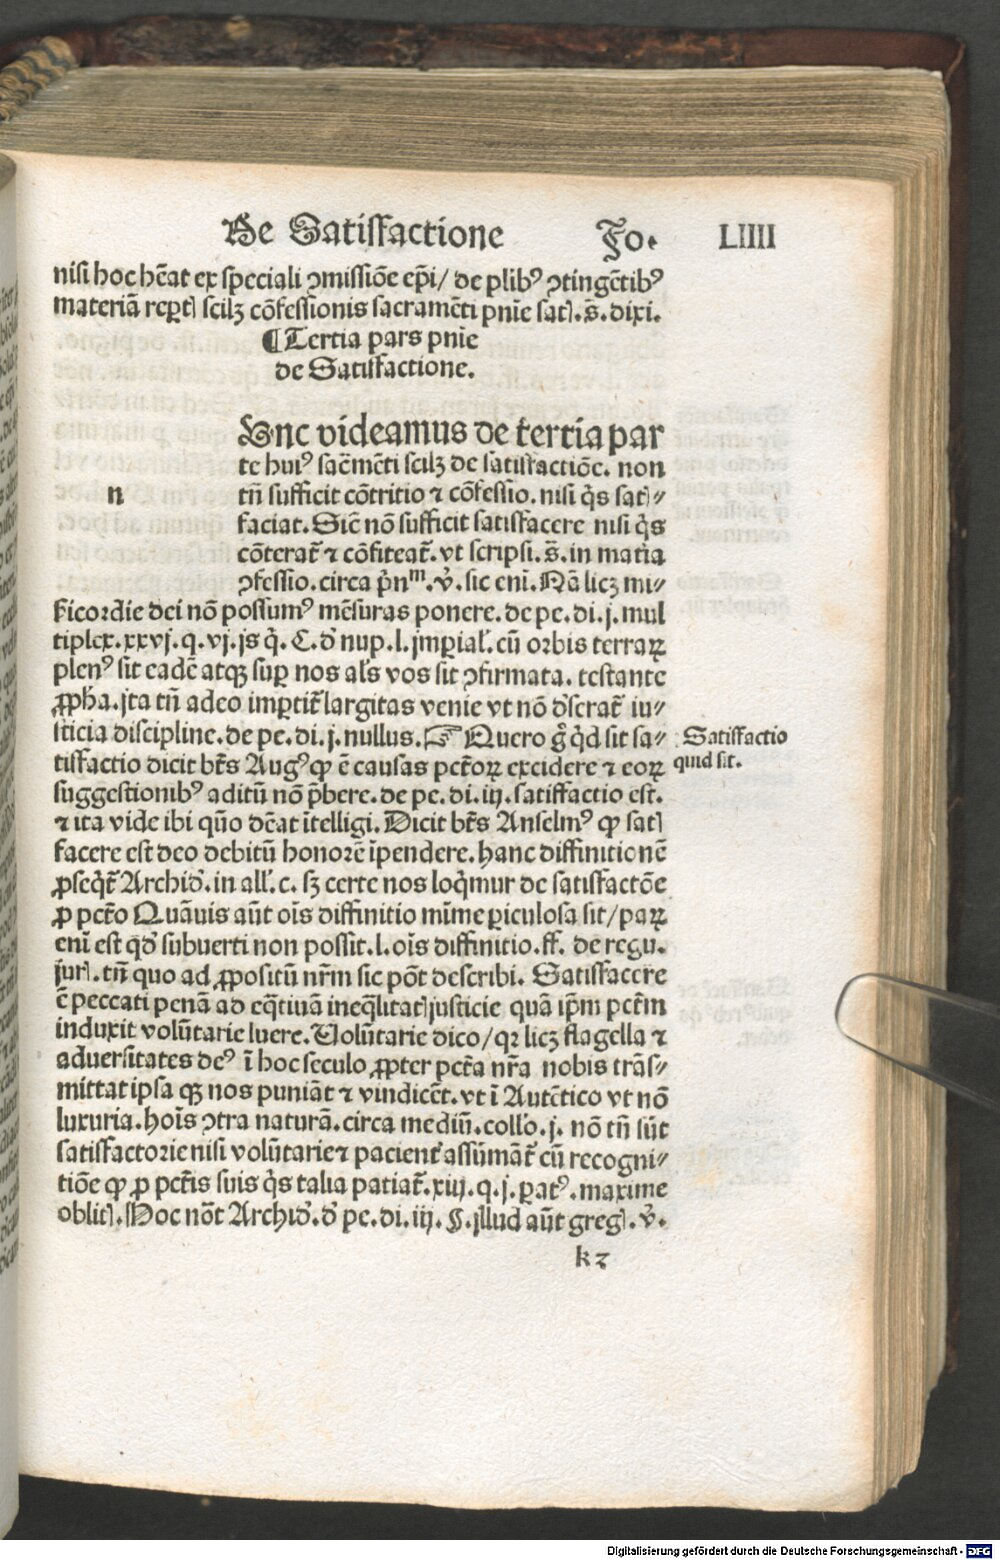 De Satisfactione Fo. LIIII
nisi hoc hẽat ex speciali ↄmissiõe ep̃i/ de plibꝰ ↄtingẽtibꝰ
materiã rep̱tꝭ scilꝫ cõfessionis sacramẽti pnĩe satꝭ. s̃. dixi.
¶ Tertia pars pnĩe
de Satisfactione.
Unc videamus de tertia par
te huiꝰ sac̃mẽti scilꝫ de satisfactiõe. non
n
tñ sufficit cõtritio ⁊ cõfessio. nisi q̇s satꝭ⸗
faciat. Sic̃ nõ sufficit satisfacere nisi q̇s
cõterat̃ ⁊ cõfiteat̃. vt scripsi. s̃. in mat̃ia
ↄfessio. circa p̃nᵐ. ꝟ̇. sic eni. Nã licꝫ mi⸗
sicordie dei nõ possumꝰ mẽsuras ponere. de pe. di. j. mul
tiplex. xxvj. q. vj. js q̇. C. ď nup. l. jmp̱ial̃. cũ orbis terraꝝ
plenꝰ sit eadẽ atqꝫ sup̱ nos al̃s vos sit ↄfirmata. testante
ꝓph̃a. jta tñ adeo imp̱tit̃ largitas venie vt nõ ďserat̃ iu⸗
sticia discipline. de pe. di. j. nullus. ☞ Quero g̊ q̇d sit sa⸗
Satisfactio
quid sit.
tisfactio dicit bt̃s Augꝰ ꝙ ẽ causas pct̃oꝝ excidere ⁊ eoꝝ
suggestionibꝰ aditũ nõ p̃bere. de pe. di. iij. satisfactio est.
⁊ ita vide ibi qũo dẽat ĩtelligi. Dicit bt̃s Anselmꝰ ꝙ satꝭ
facere est deo debitũ honorẽ ĩpendere. hanc diffinitionẽ
ꝓseq̇t̃ Archiď. in all̃. c. sꝫ certe nos loq̇mur de satisfactõe
ꝓ pct̃o Quãuis aũt oĩs diffinitio mĩme p̱iculosa sit/ paꝝ
enĩ est qď subuerti non possit. l. oĩs diffinitio. ff. de regu.
jurꝭ. tñ quo ad ꝓpositũ nr̃m sic põt describi. Satisfacere
ẽ peccati penã ad eq̃tiuã ineq̃litatꝭ justicie quã ip̃m pct̃m
induxit volũtarie luere. Volũtarie dico/ qꝛ licꝫ flagella ⁊
aduersitates deꝰ ĩ hoc seculo ꝓpter pct̃a nr̃a nobis trãs⸗
mittat ipsa qꝫ nos puniãt ⁊ vindicẽt. vt ĩ Autẽtico vt nõ
luxuria. hoĩs ↄtra naturã. circa mediũ. coll̃o. j. nõ tñ sũt
satisfactorie nisi volũtarie ⁊ pacient̃ assũmãt̃ cũ recogni⸗
tiõe ꝙ ꝓ pct̃is suis q̇s talia patiat̃. xiij. q. j. p̱atꝰ. maxime
oblitꝭ. Hoc nõt Archiď. ď pe. di. iij. §. jllud aũt gregꝭ. ꝟ̇.
k 2
Digitalisierung gefördert durch die Deutsche Forschungsgemeinschaft - DFG